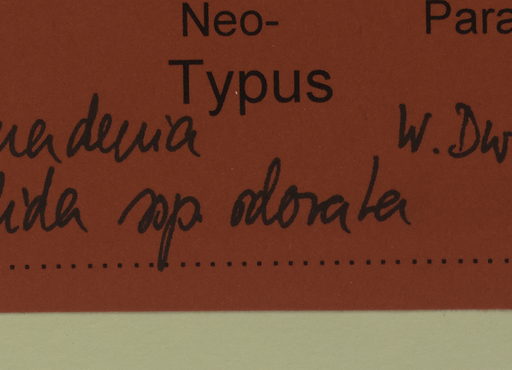 Neo- Para
Typus
nadenia W. Dw
lida ssp. odorata